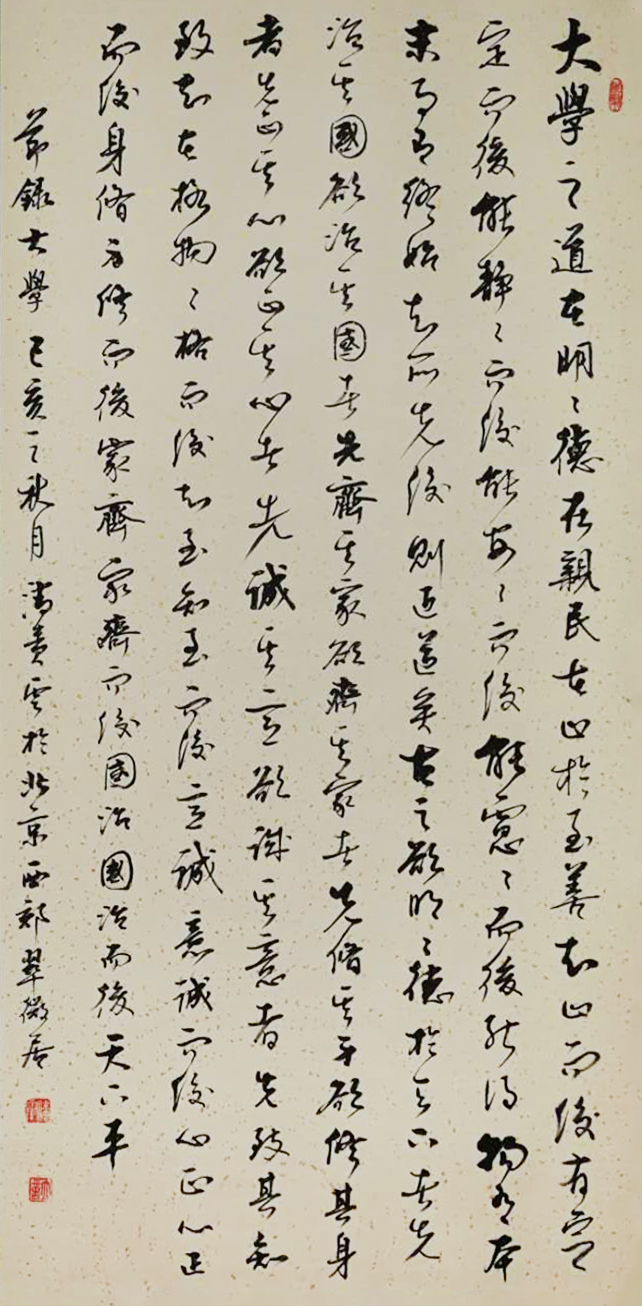 大學之道在明〻德在親民在止於至善知止而後有定
定而後能靜〻而後能安〻而後能慮〻而後能得物有本
末事有終始知所先後則近道矣古之欲明〻德於天下者先
治其國欲治其國者先齊其家欲齊其家者先脩其身欲修其身
者先正其心欲正其心者先誠其意欲誠其意者先致其知
致知在格物〻格而後知至知至而後意誠意誠而後心正心正
而後身脩身修而後家齊家齊而後國治國治而後天下平
節錄大學 己亥之秋月 黃雲於北京西郊翠微居